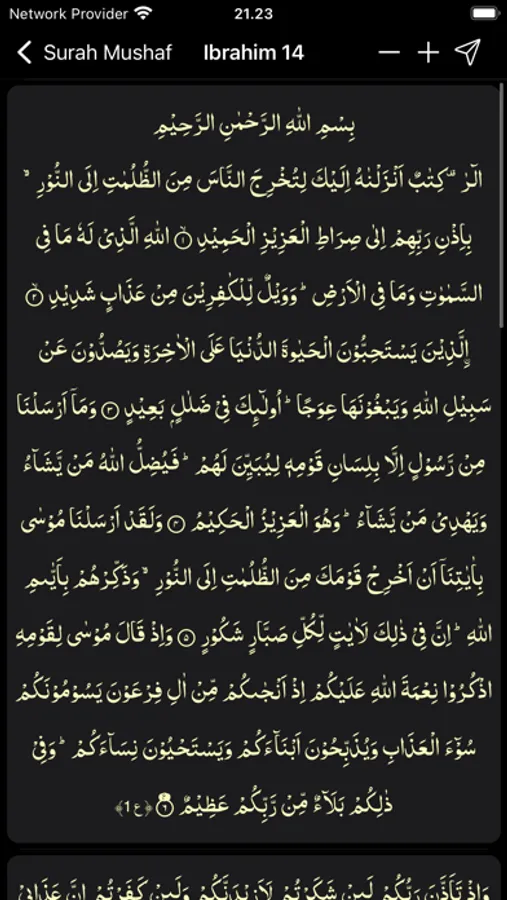 Network Provider 21.23
Surah Mushaf Ibrahim 14
بِسْمِ اللهِ الرَّحْمٰنِ الرَّحِيْمِ
الٓرٰ ۗ كِتٰبٌ اَنْزَلْنٰهُ اِلَيْكَ لِتُخْرِجَ النَّاسَ مِنَ الظُّلُمٰتِ اِلَى النُّوْرِ ۙ
بِاِذْنِ رَبِّهِمْ اِلٰى صِرَاطِ الْعَزِيْزِ الْحَمِيْدِ ۙ ۝١ اللهِ الَّذِيْ لَهٗ مَا فِى
السَّمٰوٰتِ وَمَا فِى الْاَرْضِ ۗ وَوَيْلٌ لِّلْكٰفِرِيْنَ مِنْ عَذَابٍ شَدِيْدٍ ۙ ۝٢
ۨالَّذِيْنَ يَسْتَحِبُّوْنَ الْحَيٰوةَ الدُّنْيَا عَلَى الْاٰخِرَةِ وَيَصُدُّوْنَ عَنْ
سَبِيْلِ اللهِ وَيَبْغُوْنَهَا عِوَجًا ۗ اُولٰۤىِٕكَ فِيْ ضَلٰلٍۢ بَعِيْدٍ ۝٣ وَمَآ اَرْسَلْنَا
مِنْ رَّسُوْلٍ اِلَّا بِلِسَانِ قَوْمِهٖ لِيُبَيِّنَ لَهُمْ ۗ فَيُضِلُّ اللهُ مَنْ يَّشَاۤءُ
وَيَهْدِيْ مَنْ يَّشَاۤءُ ۗ وَهُوَ الْعَزِيْزُ الْحَكِيْمُ ۝٤ وَلَقَدْ اَرْسَلْنَا مُوْسٰى
بِاٰيٰتِنَآ اَنْ اَخْرِجْ قَوْمَكَ مِنَ الظُّلُمٰتِ اِلَى النُّوْرِ ۙ وَذَكِّرْهُمْ بِاَيّٰىمِ
اللهِ ۗ اِنَّ فِيْ ذٰلِكَ لَاٰيٰتٍ لِّكُلِّ صَبَّارٍ شَكُوْرٍ ۝٥ وَاِذْ قَالَ مُوْسٰى لِقَوْمِهِ
اذْكُرُوْا نِعْمَةَ اللهِ عَلَيْكُمْ اِذْ اَنْجٰىكُمْ مِّنْ اٰلِ فِرْعَوْنَ يَسُوْمُوْنَكُمْ
سُوْۤءَ الْعَذَابِ وَيُذَبِّحُوْنَ اَبْنَاۤءَكُمْ وَيَسْتَحْيُوْنَ نِسَاۤءَكُمْ ۗ وَفِيْ
ذٰلِكُمْ بَلَاۤءٌ مِّنْ رَّبِّكُمْ عَظِيْمٌ ࣖ ۝٦ ﴿ع 1﴾
وَاِذْ تَاَذَّنَ رَبُّكُمْ لَىِٕنْ شَكَرْتُمْ لَاَزِيْدَنَّكُمْ وَلَىِٕنْ كَفَرْتُمْ اِنَّ عَذَابِيْ